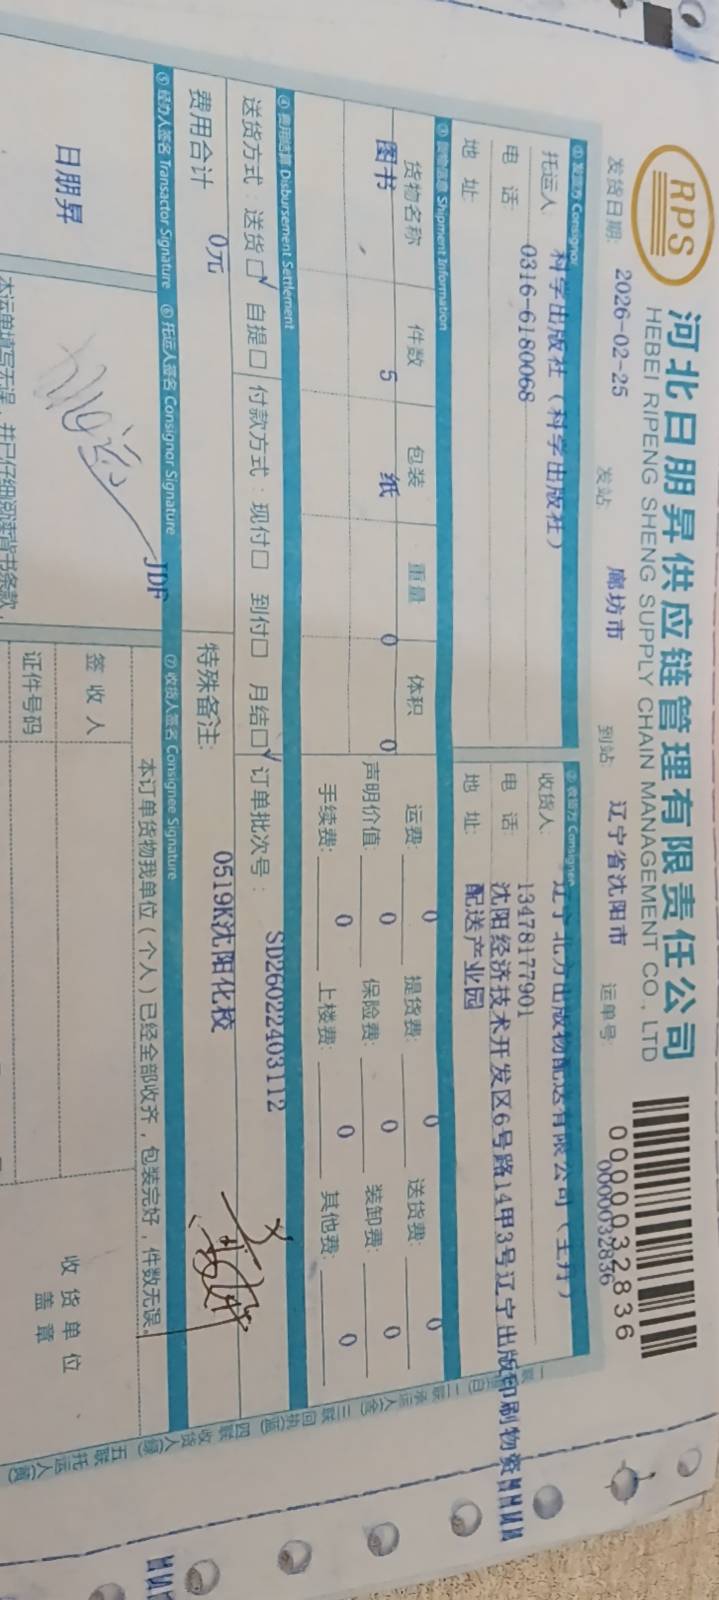 RPS
河北日朋昇供应链管理有限责任公司
HEBEI RIPENG SHENG SUPPLY CHAIN MANAGEMENT CO., LTD
0000032836
0000032836
发货日期: 2026-02-25 发站: 廊坊市 到站: 辽宁省沈阳市 运单号:
① 发货方 Consignor
托运人: 科学出版社（科学出版社）
电 话: 0316-6180068
地 址:
② 收货方 Consignee
收货人: 辽宁北方出版物配送有限公司（王丹）
电 话: 13478177901
地 址: 沈阳经济技术开发区6号路14甲3号辽宁出版印刷物资
配送产业园
③ 货物信息 Shipment Information
货物名称 件数 包装 重量 体积
图书 5 纸 0 0
运费: 0 提货费: 0 送货费: 0
声明价值: 0 保险费: 0 装卸费: 0
手续费: 0 上楼费: 0 其他费: 0
④ 费用结算 Disbursement Settlement
送货方式：送货☑ 自提□ 付款方式：现付□ 到付□ 月结☑ 订单批次号： SD26022403112
费用合计 0元 特殊备注: 0519K沈阳化校
⑤ 经办人签名 Transactor Signature ⑥ 托运人签名 Consignor Signature ⑦ 收货人签名 Consignee Signature
日朋昇
JDF
本订单货物我单位（个人）已经全部收齐，包装完好，件数无误。
签 收 人
证件号码
收 货 单 位
盖 章
本运单填写无误，并已仔细阅读背书条款，
二联 承运人
三联 回执
四联 收货人
五联 托运人